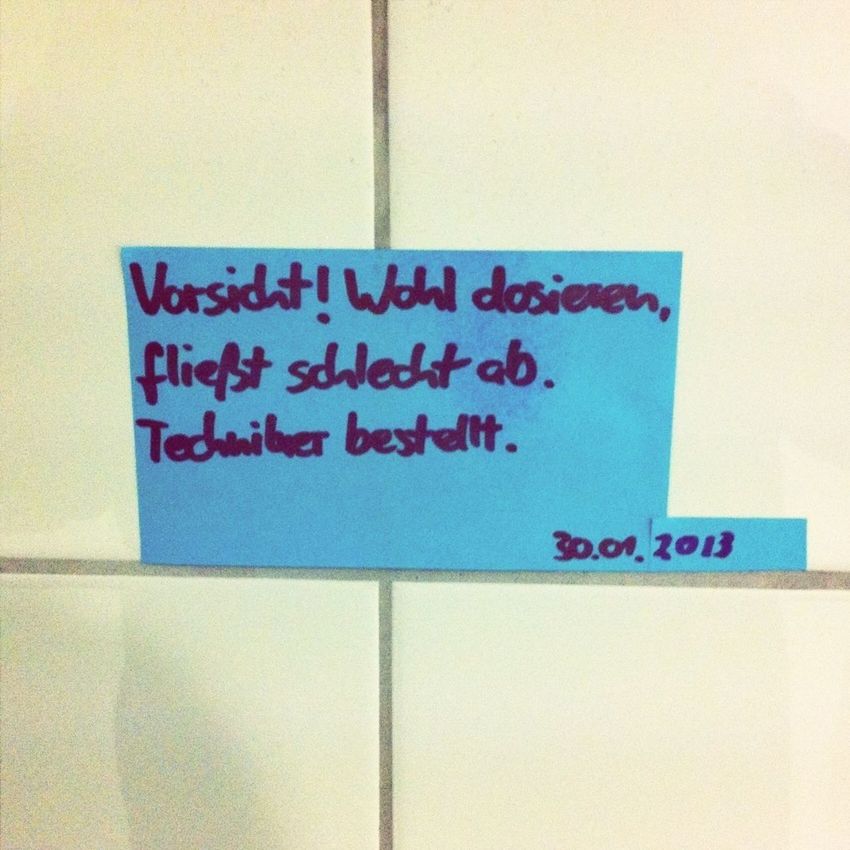 Vorsicht! Wohl dosieren,
fließt schlecht ab.
Techniker bestellt.
30.01.2013